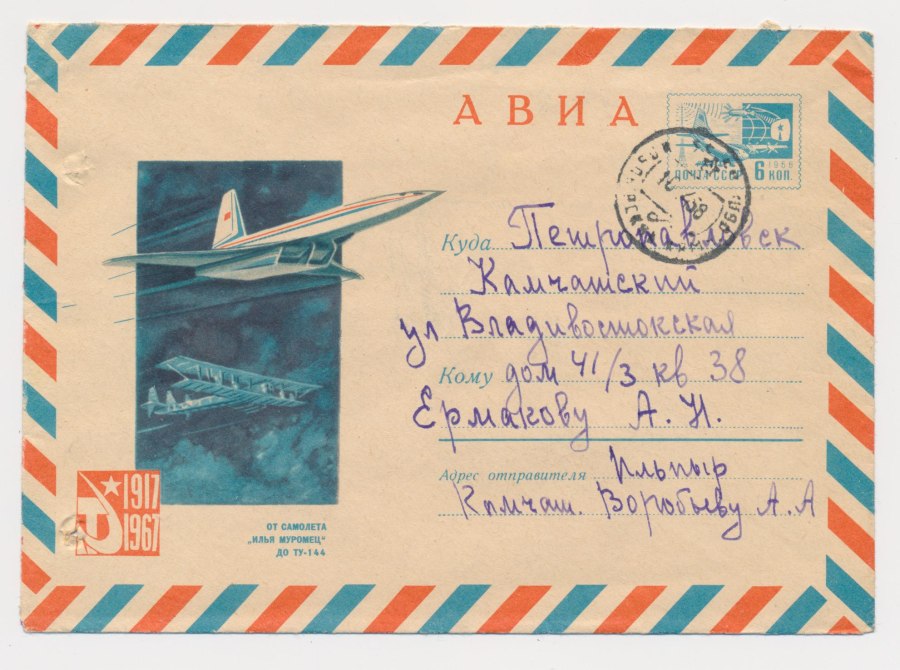 АВИА
ПОЧТА СССР 1966 6 КОП.
Куда Петропавловск
Камчатский
ул Владивостокская
Кому дом 41/3 кв 38
Ермакову А. Н.
Адрес отправителя Ильпыр
Камчат. Воробьеву А. А
1917
1967
ОТ САМОЛЕТА
„ИЛЬЯ МУРОМЕЦ“
ДО ТУ-144